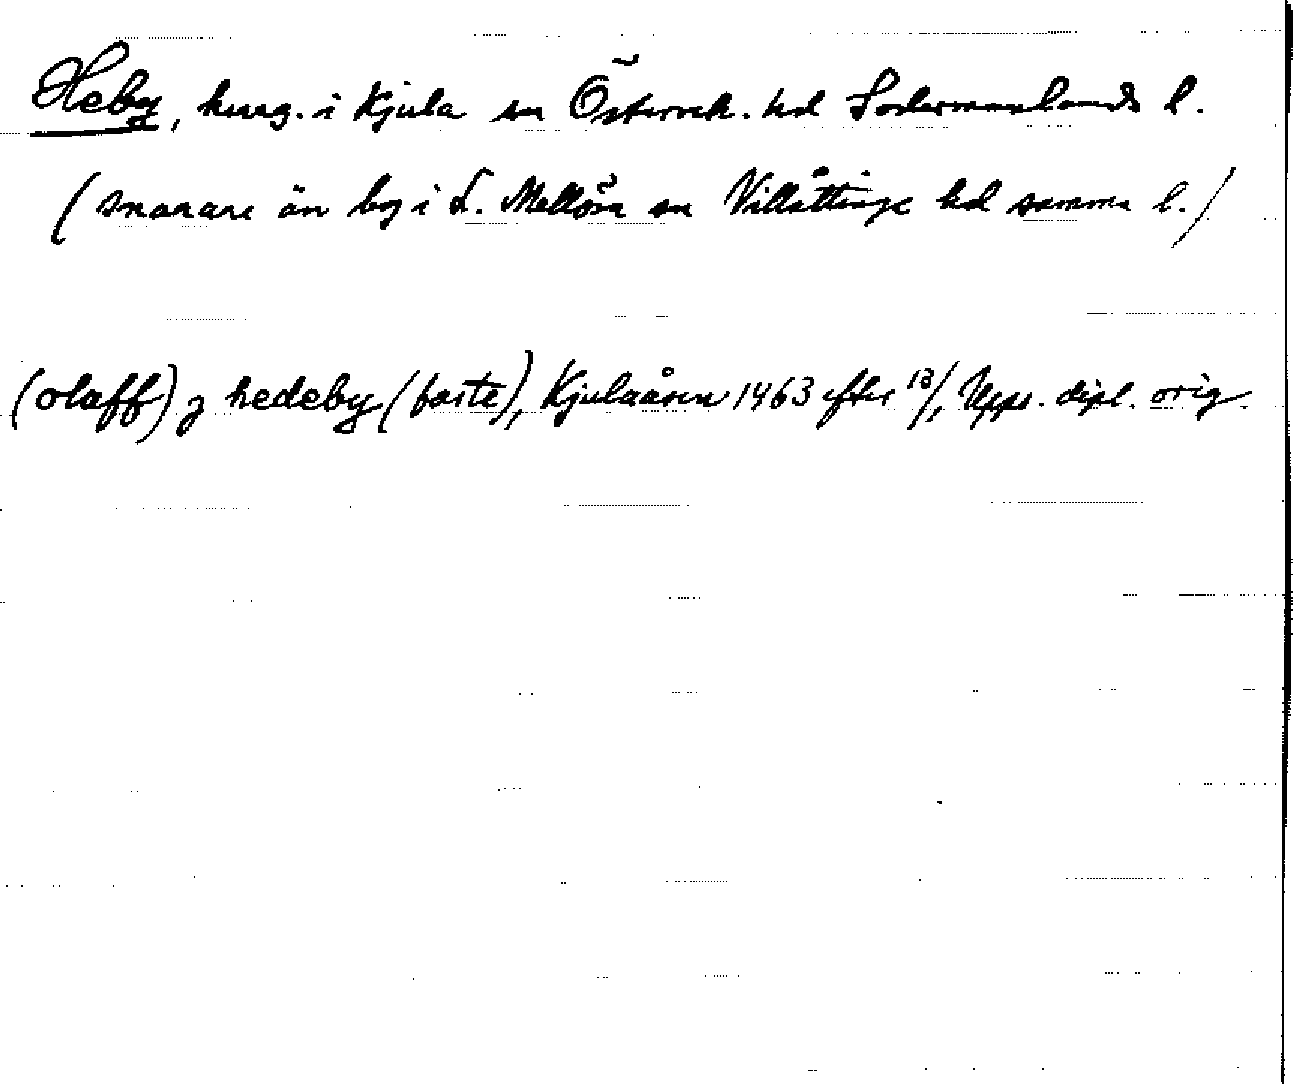 Heby, herrg. i Kjula sn Österrek. hd Södermanlands l.
(snarare än by i L. Mellösa sn Villåttinge hd samma l.)
(olaff) ȝ hedeby (faste), Kjulaåsen 1463 efter 13/1, Upps. dipl. orig.